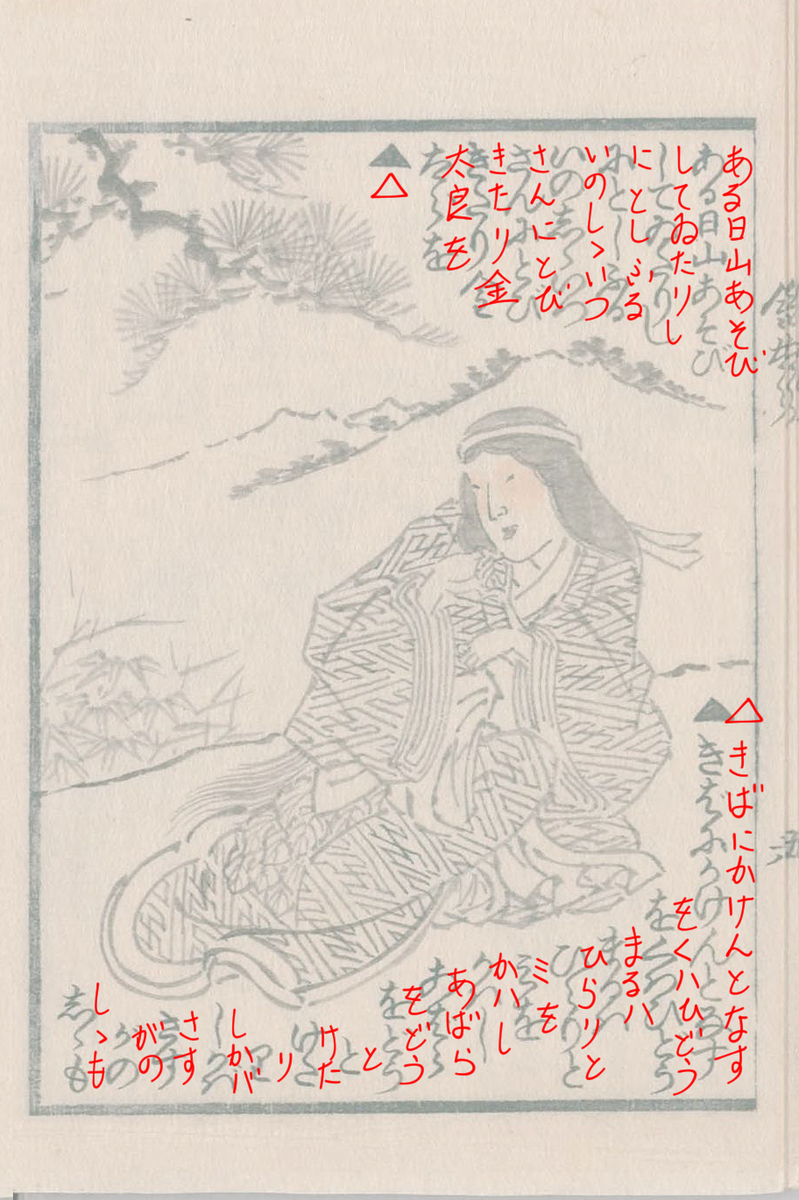 ある日山あそび
してゐたりし
にとしふる
いのしゝいつ
さんにとび
きたり金
太良を
△
△きばにかけんとなす
をくハひどう
まるハ
ひらりと
ミを
かハし
あばら
をどう
と
けた
り
しかバ
さす
がの
しゝも